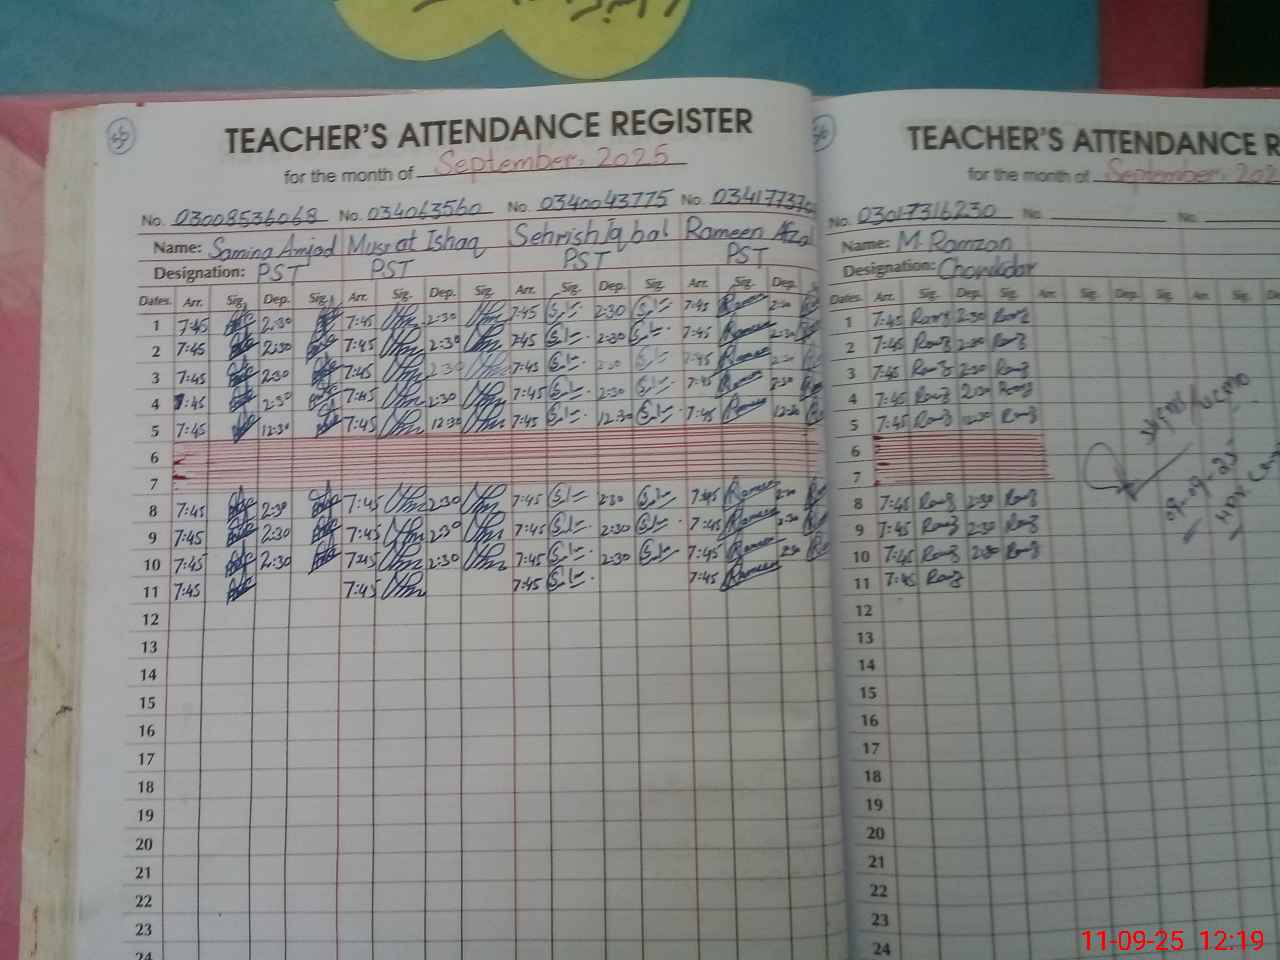 TEACHER'S ATTENDANCE REGISTER
for the month of September, 2025
No. 03008536068 No. 034063560 No. 0340043775 No. 03417737
Name: Samina Amjad Musrat Ishaq Sehrish Iqbal Rameen Afzal
Designation: PST PST PST PST
Dates. Arr. Sig. Dep. Sig. Arr. Sig. Dep. Sig. Arr. Sig. Dep. Sig. Arr. Sig. Dep.
1 7:45 2:30 7:45 2:30 7:45 2:30 7:45 Rameen 2:30
2 7:45 2:30 7:45 2:30 7:45 2:30 7:45 Rameen 2:30
3 7:45 2:30 7:45 2:30 7:45 2:30 7:45 Rameen 2:30
4 7:45 2:30 7:45 2:30 7:45 2:30 7:45 Rameen 2:30
5 7:45 12:30 7:45 12:30 7:45 12:30 7:45 Rameen 12:30
6
7
8 7:45 2:30 7:45 2:30 7:45 2:30 7:45 Rameen 2:30
9 7:45 2:30 7:45 2:30 7:45 2:30 7:45 Rameen 2:30
10 7:45 2:30 7:45 2:30 7:45 2:30 7:45 Rameen 2:30
11 7:45 7:45 7:45 7:45 Rameen
12
13
14
15
16
17
18
19
20
21
22
23
24
TEACHER'S ATTENDANCE R
for the month of September, 202
No. 03017316230 No. No.
Name: M. Ramzan
Designation: Chowkidar
Dates. Arr. Sig. Dep. Sig. Arr. Sig. Dep. Sig. Arr. Sig. De
1 7:45 Ramz 2:30 Ramz
2 7:45 Ramz 2:30 Ramz
3 7:45 Ramz 2:30 Ramz
4 7:45 Ramz 2:30 Ramz
5 7:45 Ramz 12:30 Ramz
6
7
8 7:45 Ramz 2:30 Ramz
9 7:45 Ramz 2:30 Ramz
10 7:45 Ramz 2:30 Ramz
11 7:45 Ramz
12
13
14
15
16
17
18
19
20
21
22
23
24
09-09-25
11-09-25 12:19